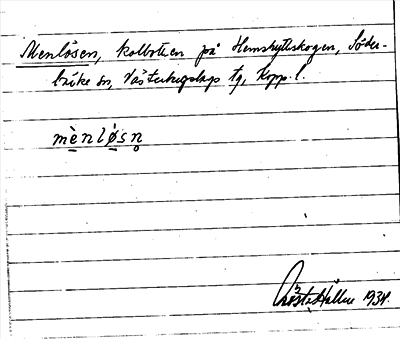 Menlösen, kolbotten på Hemshytteskogen, Söder-
bärke sn, Västerbergslags tg, Kopp. l.
mènlø̀sn̥
Gösta Hallén 1931.